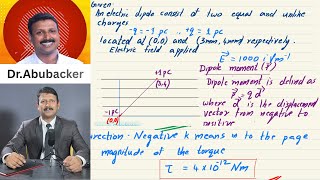 Given:
An electric dipole consist of two equal and unlike
charges -q = -1 pc, +q = 1 pc
located at (0,0) and (3mm, 4mm) respectively.
Electric field applied
E = 1000 i V m⁻¹
+1 pc
(3,4)
-1 pc
(0,0)
Dipole moment (P)
Dipole moment is defined as
P = q d
where d is the displacement
vector from negative to
positive
Dr.Abubacker
irection:- Negative k means in to the page
magnitude of the torque
τ = 4 x 10⁻¹² Nm